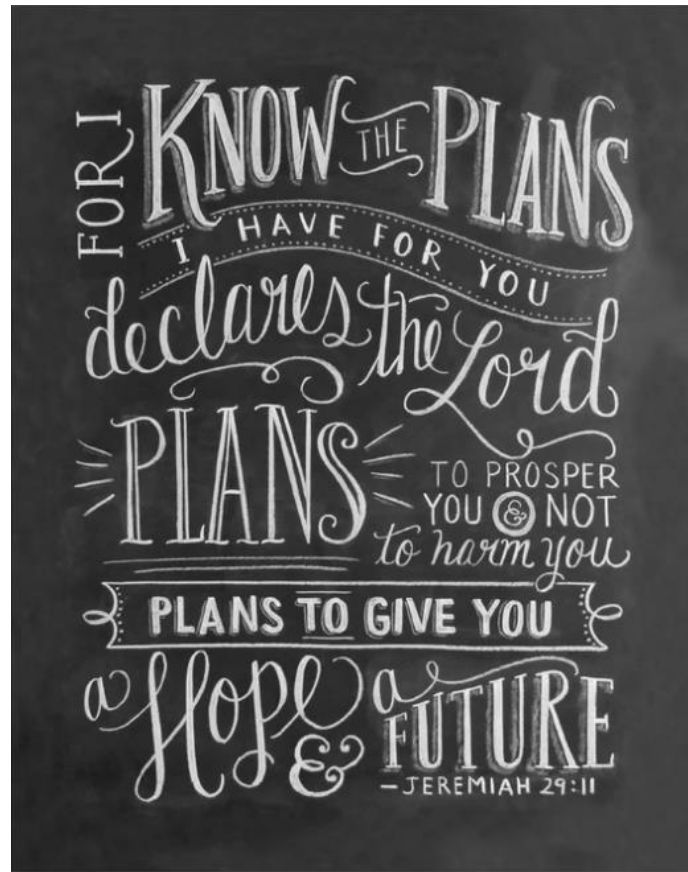 FOR I
KNOW THE PLANS
I HAVE FOR YOU
declares the Lord
PLANS
TO PROSPER
YOU & NOT
to harm you
PLANS TO GIVE YOU
a Hope & a
FUTURE
—JEREMIAH 29:11